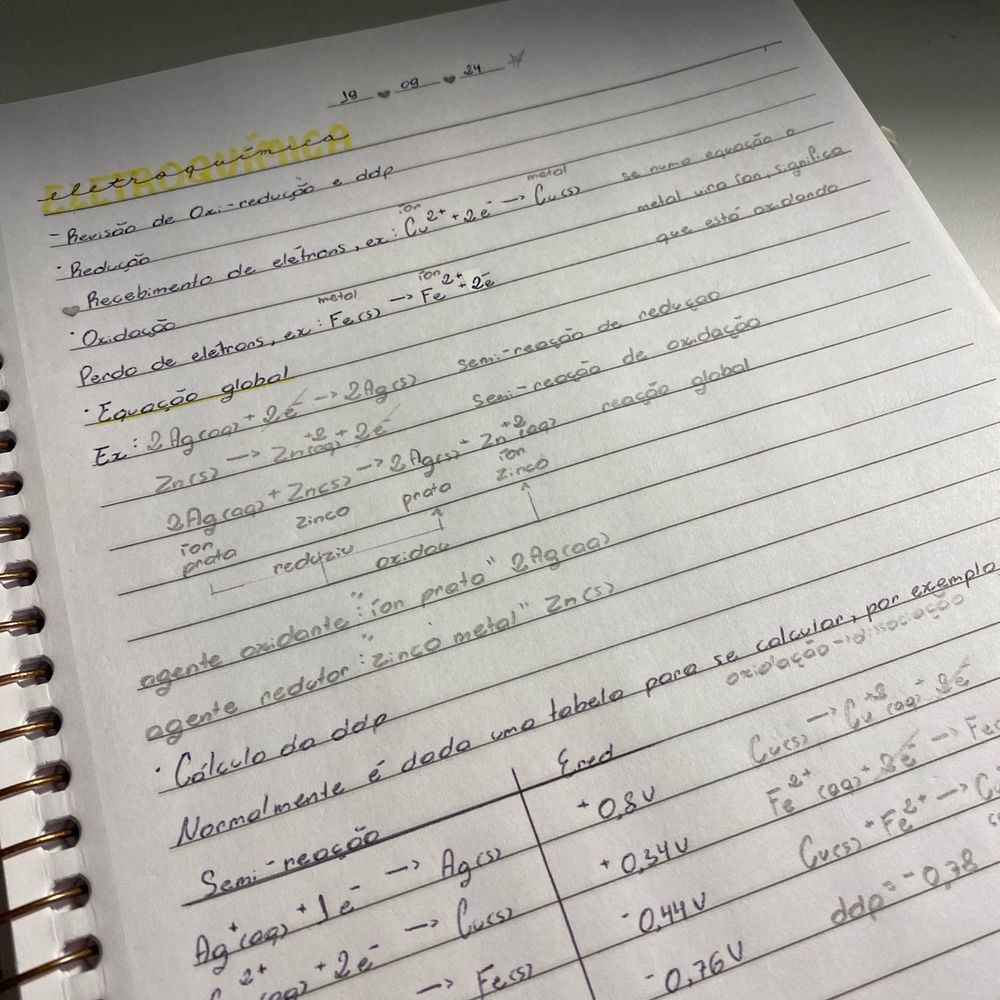 19 09 24
eletroquímica
ELETROQUÍMICA
- Revisão de Oxi-redução e ddp
· Redução
Recebimento de elétrons, ex: Cu²⁺ + 2e⁻ → Cu(s)
íon metal
se numa equação o
metal vira íon, significa
que está oxidando
· Oxidação
Perda de elétrons, ex: Fe(s) → Fe²⁺ + 2e⁻
metal íon
· Equação global
Ex: 2Ag(aq) + 2e⁻ → 2Ag(s) semi-reação de redução
Zn(s) → Zn⁺²(aq) + 2e⁻ semi-reação de oxidação
2Ag(aq) + Zn(s) → 2Ag(s) + Zn⁺²(aq) reação global
íon prata zinco prata íon zinco
reduziu oxidou
agente oxidante: "íon prata" 2Ag(aq)
agente redutor: "zinco metal" Zn(s)
· Cálculo da ddp
Normalmente é dada uma tabela para se calcular, por exemplo
oxidação → dissociação
Semi-reação Ered
Ag⁺(aq) + 1e⁻ → Ag(s) + 0,8V
+ 2e⁻ → Cu(s) + 0,34V
→ Fe(s) - 0,44V
- 0,76V
Cu(s) → Cu⁺²(aq) + 2e⁻
Fe²⁺(aq) + 2e⁻ → Fe
Cu(s) + Fe²⁺ →
ddp = - 0,78